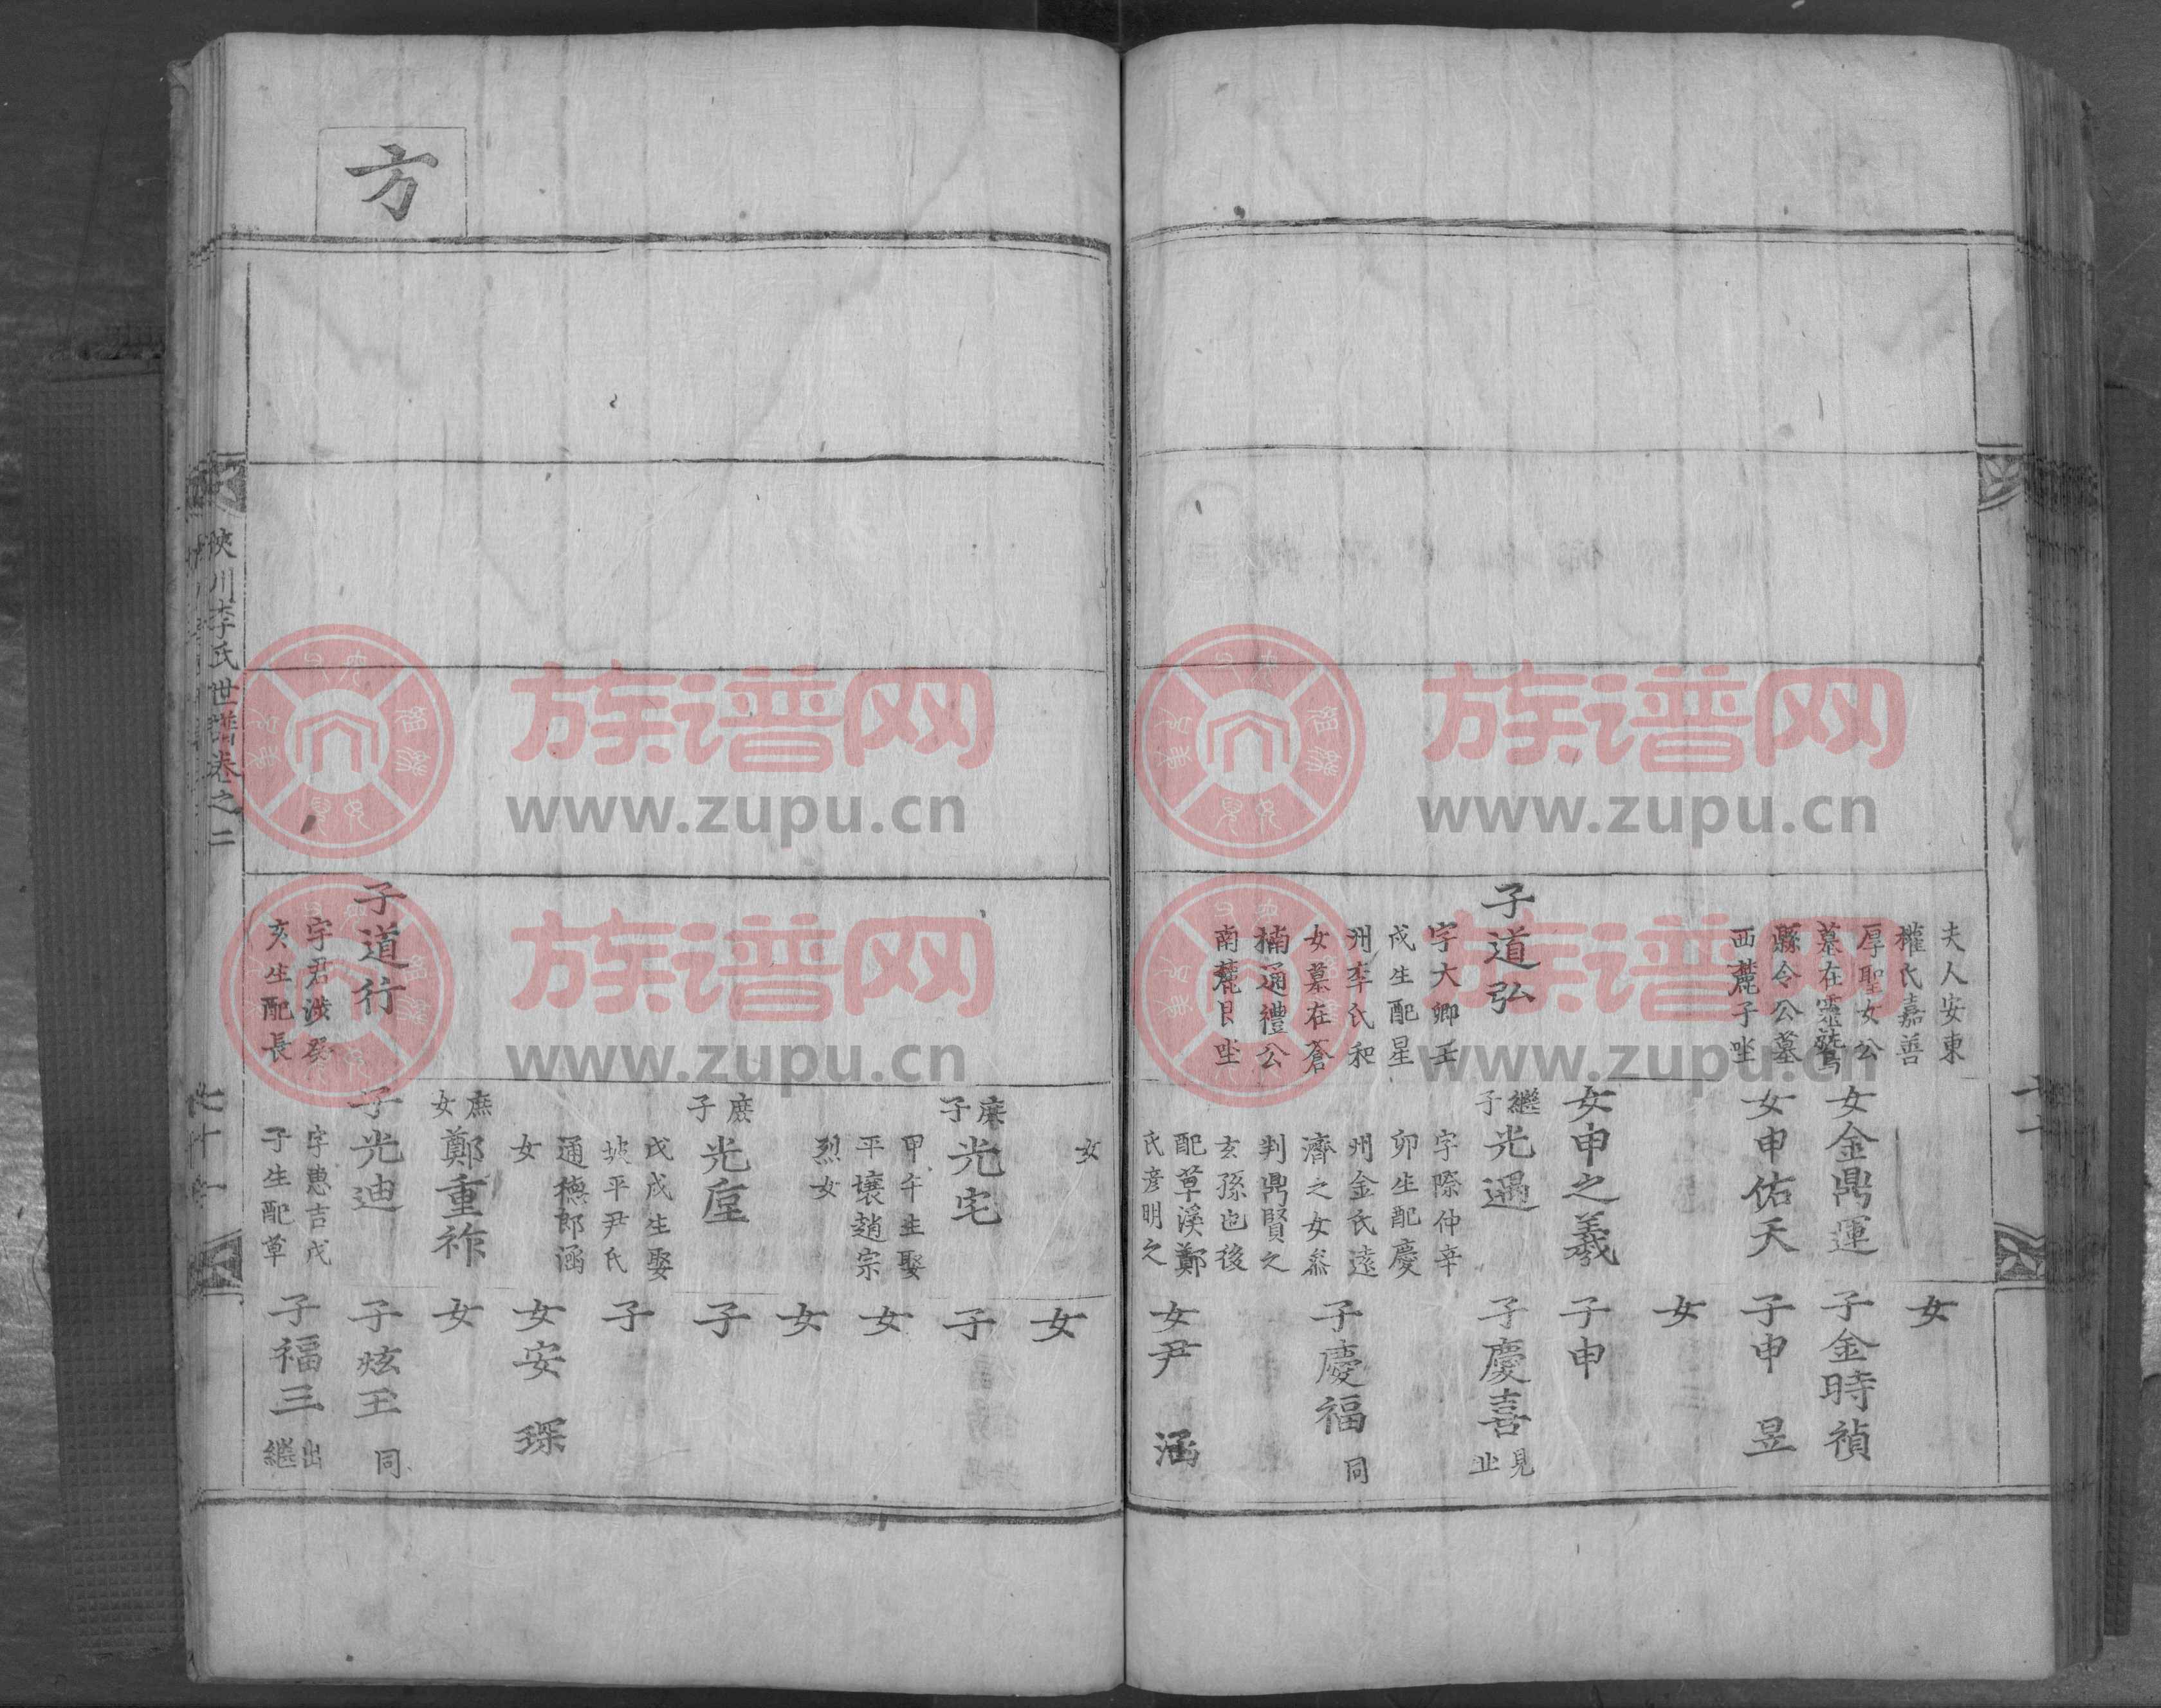 夫人安東
權氏嘉善
厚聖女公
墓在靈鷲
縣令公墓
西麓子坐
子道弘
字大卿壬
戌生配星
州李氏和
女墓在蒼
楠通禮公
南麓艮坐
女金鼎運
女申佑天
女申之義
繼子光遇
字際仲辛
卯生配慶
州金氏遠
濟之女叅
判鼎賢之
玄孫也後
配草溪鄭
氏彦明之
女
子金時禎
子申昱
女
子申
子慶喜
見
子慶福
同
女尹涵
方
陜川李氏世譜卷之二
子道行
字君涉癸
亥生配長
女
庶子光宅
甲午生娶
平壤趙宗
烈女
庶子光垕
戊戌生娶
坡平尹氏
通德郎涵
女
庶女鄭重祚
子光迪
字惠吉戊
子生配草
女
子
女
女
子
子
女安琛
女
子炫王
同
子福三
出繼
族谱网
www.zupu.cn
族谱网
www.zupu.cn
族谱网
www.zupu.cn
族谱网
www.zupu.cn